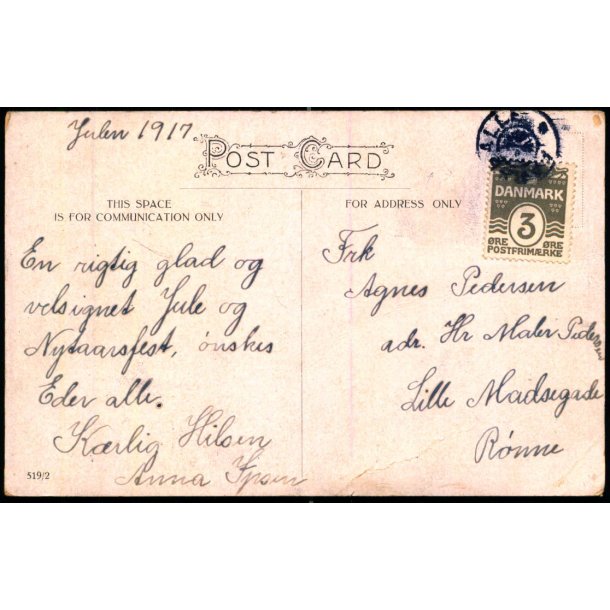 Julen 1917
POST CARD
THIS SPACE
IS FOR COMMUNICATION ONLY
FOR ADDRESS ONLY
DANMARK
3
ØRE ØRE
POSTFRIMÆRKE
En rigtig glad og
velsignet Jule og
Nytaarsfest, ønskes
Eder alle.
Kærlig Hilsen
Anna Ipsen
Frk
Agnes Pedersen
adr. Hr Maler Pedersen
Lille Madsegade
Rønne
519/2